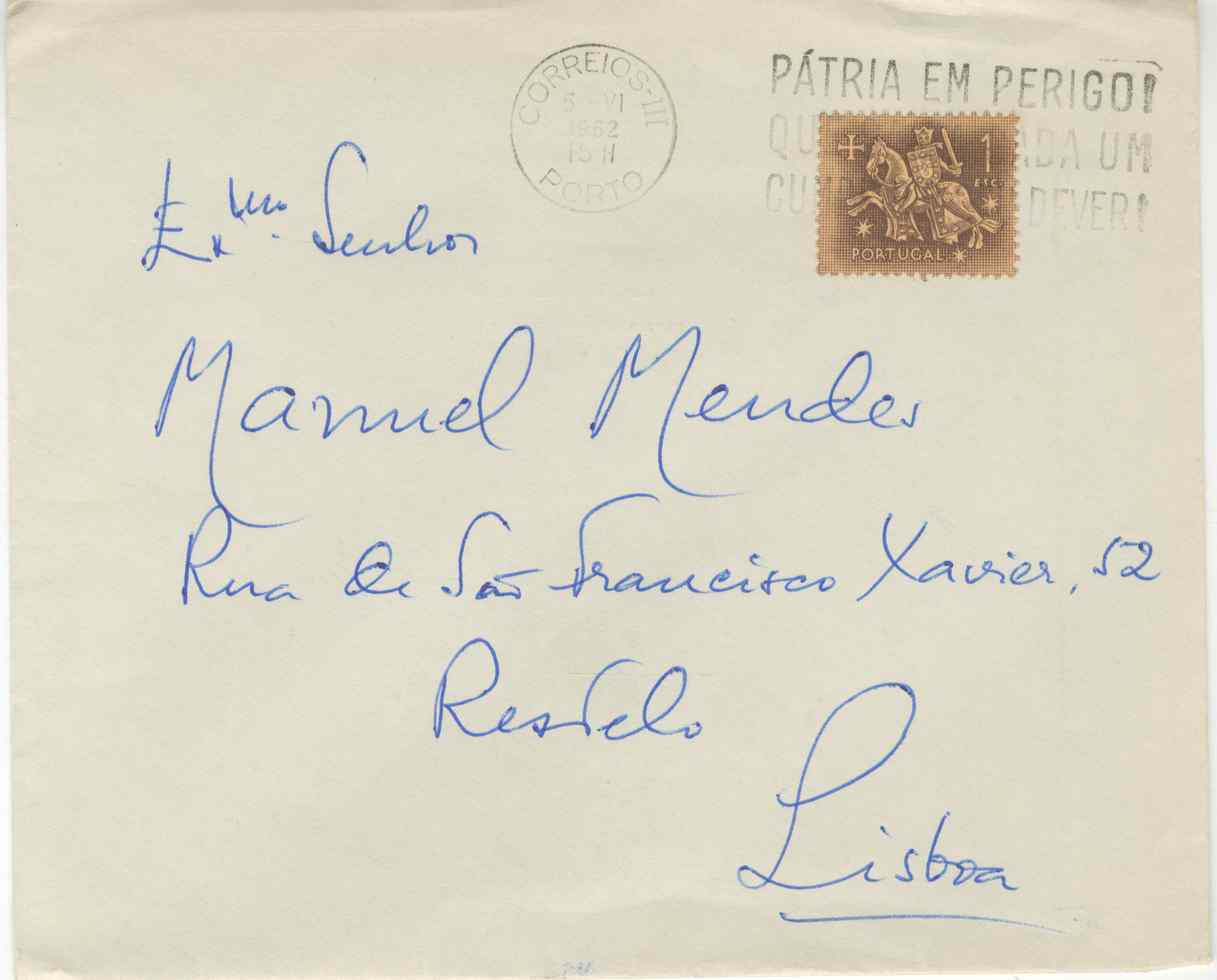 CORREIOS-III
5 -VI
1962
15 H
PORTO
PÁTRIA EM PERIGO!
QU ADA UM
CU DEVER!
1
ESC.
PORTUGAL
Exmo. Senhor
Manuel Mendes
Rua de São Francisco Xavier, 52
Restelo
Lisboa